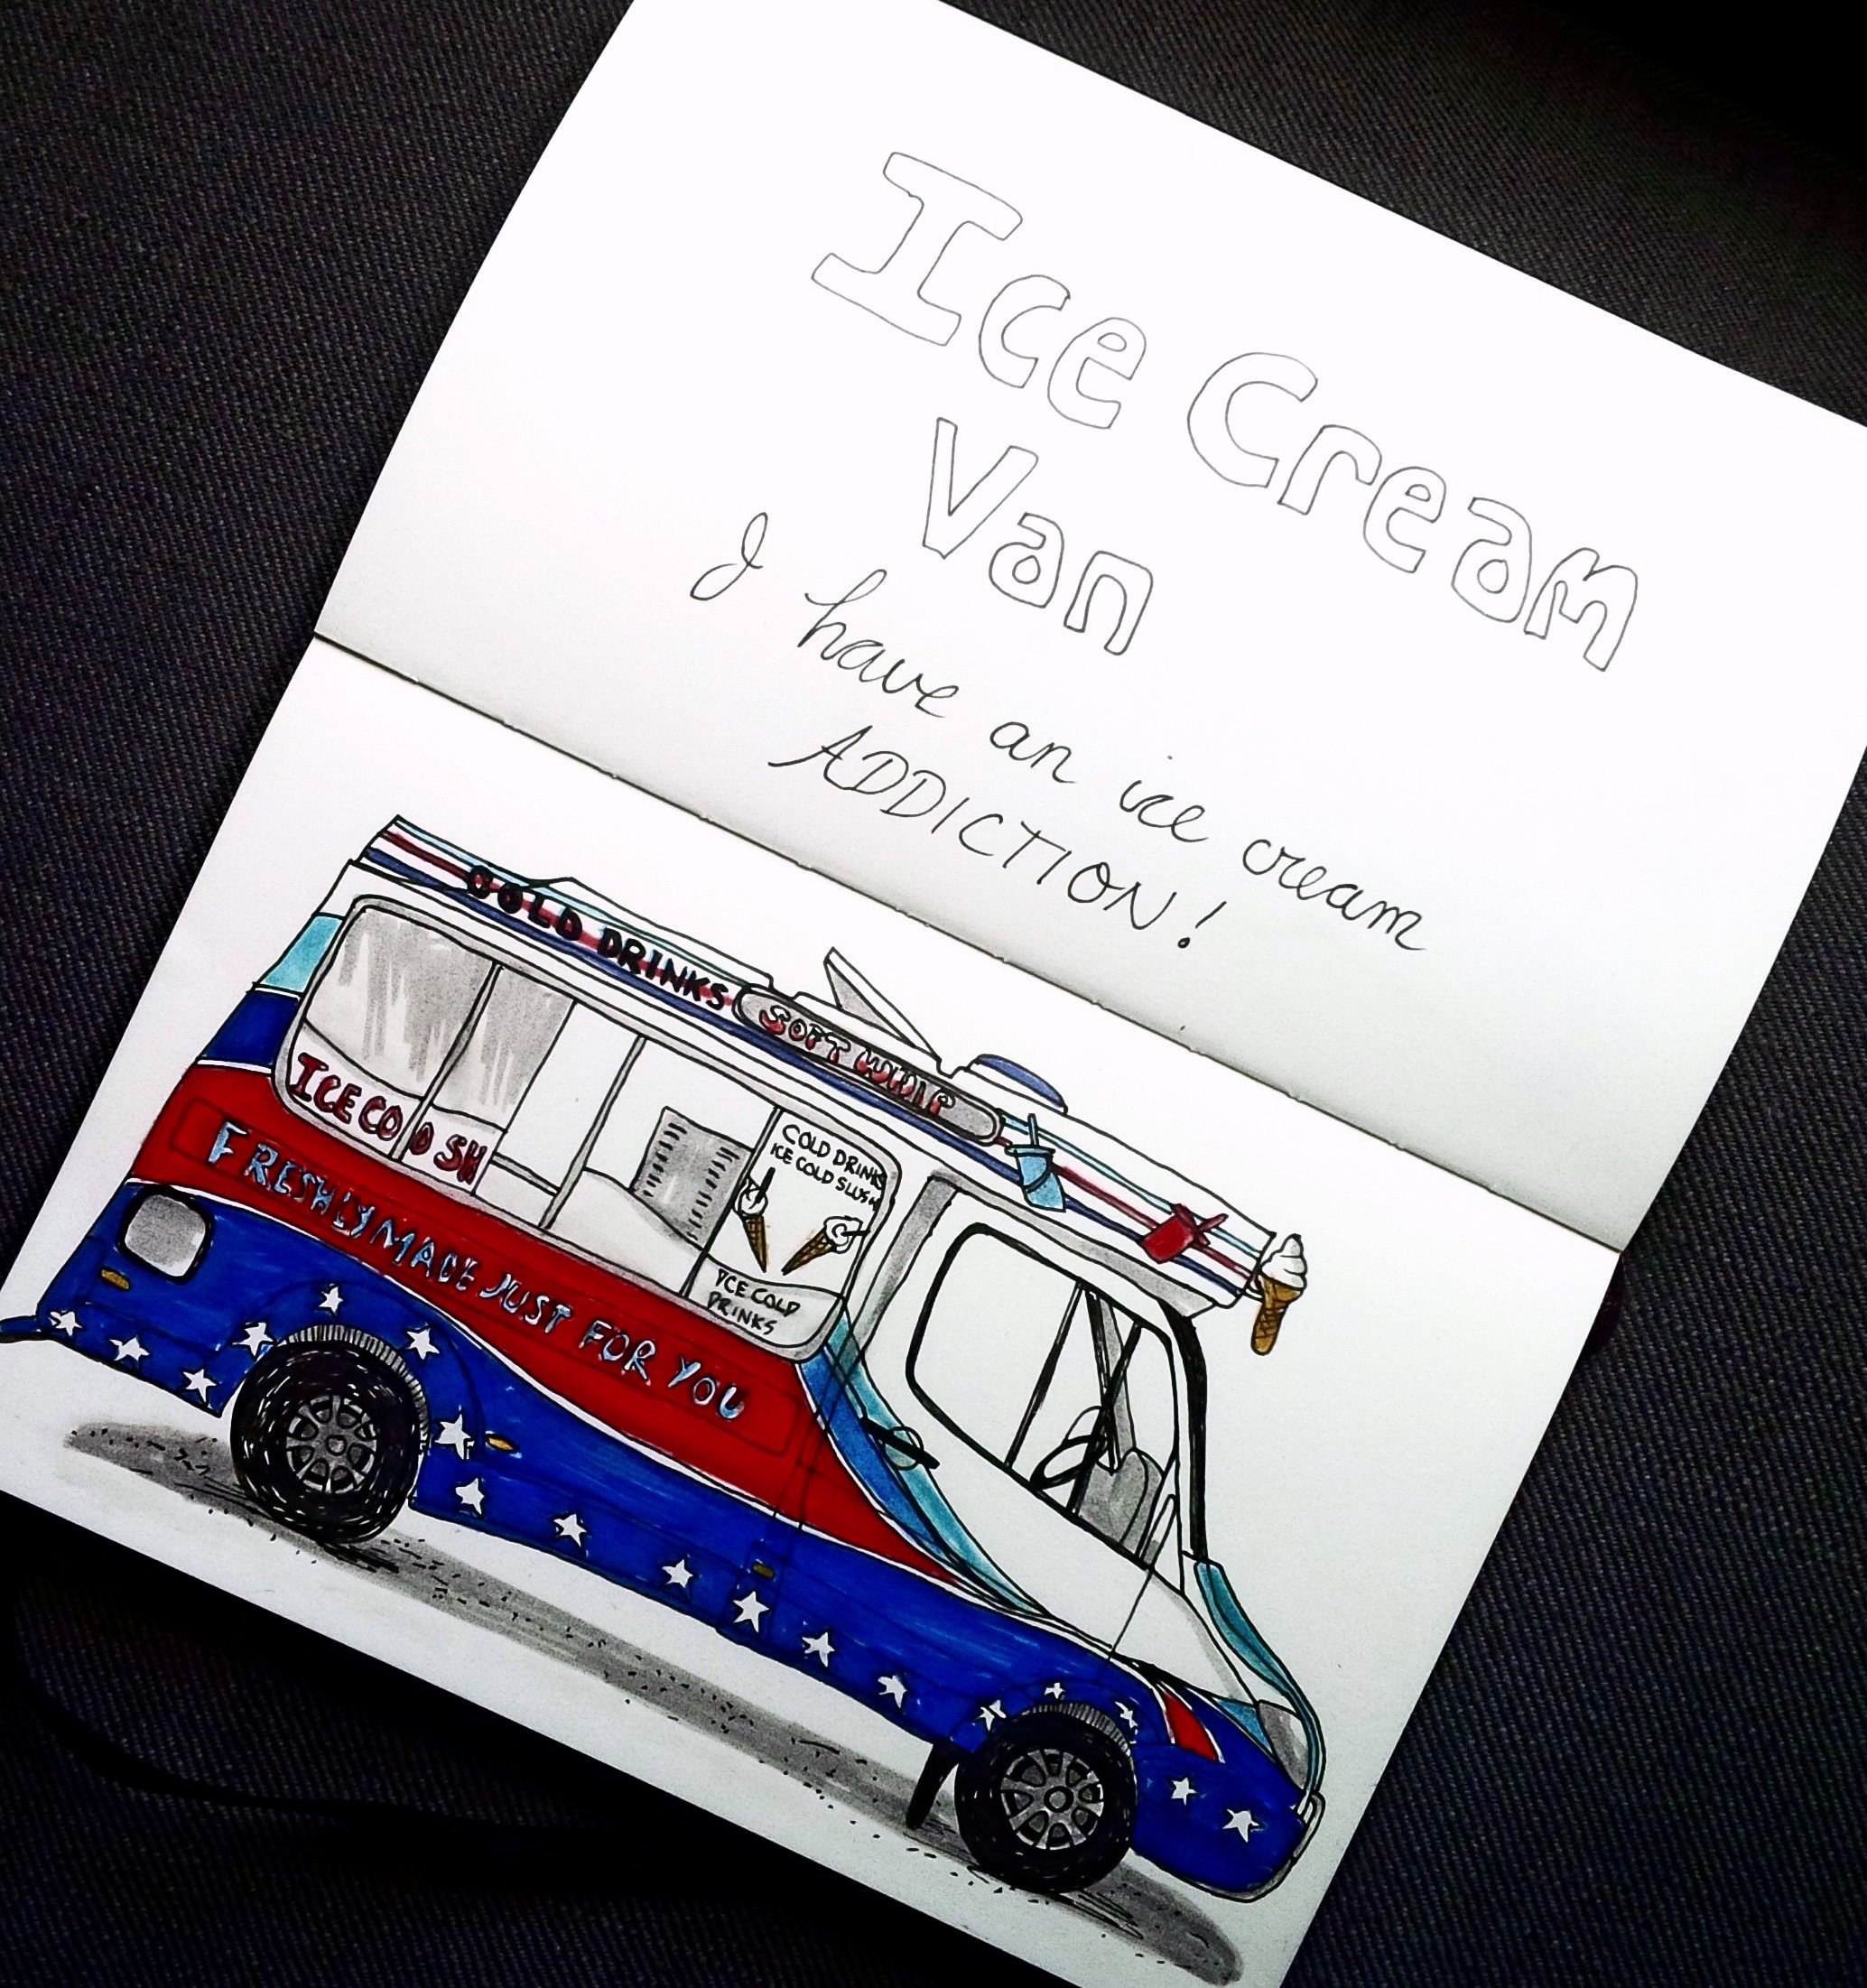 Ice Cream
Van
I have an ice cream
ADDICTION!
COLD DRINKS
SOFT WHIP
ICE COLD SH
COLD DRINKS
ICE COLD SLUSH
ICE COLD
DRINKS
FRESHLY MADE JUST FOR YOU